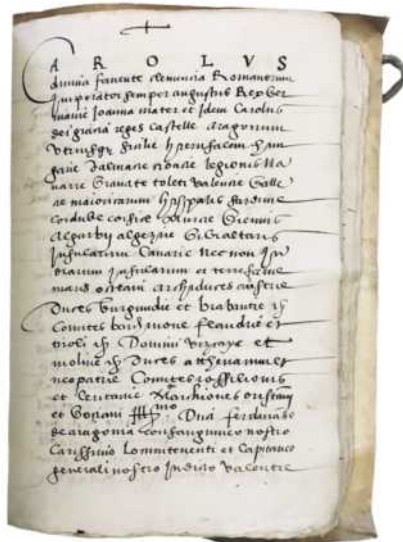 CAROLVS
diuina fauente clemencia Romanorum
Imperator semper augustus Rex Ger
manie Ioanna mater et Idem Carolus
dei gracia reges castelle aragonum
vtriusque sicilie hierusalem hun
garie dalmacie croacie legionis Na
uarre Granate toleti valencie Galle
cie maioricarum hispalis sardinie
cordube corsice Murcie Giennis
Algarbij algezire Gibraltaris
Insularum Canarie Nec non In
diarum Insularum et terre firme
maris oceani archiduces austrie
Duces burgundie et brabantie
Comites barchinone flandrie et
tiroli Domini vizcaye et
moline Duces athenarum et
neopatrie Comites rossilionis
et Ceritanie Marchiones oristani
et Gociani Ill mo Don ferdinando
de aragonia consanguineo nostro
Carissimo locumtenenti et Capitaneo
generali nostro In dicto valentie